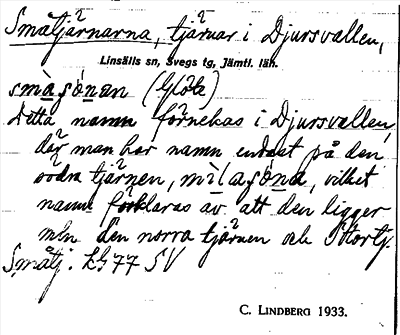 Småtjärnarna, tjärnar i Djursvallen,
Linsälls sn, Svegs tg, Jämtl. län.
smàsónan (Glöte)
Detta namn förnekas i Djursvallen,
där man har namn endast på den
södra tjärnen, mìlasóna, vilket
namn förklaras av att den ligger
mln den norra tjärnen och Stortj.
Småtj. LG 77 SV
C. LINDBERG 1933.